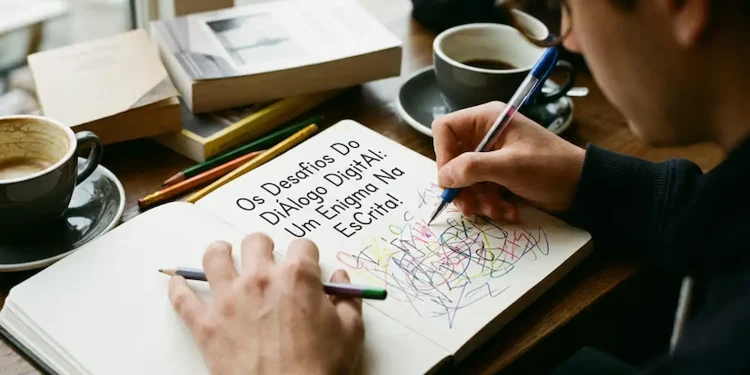 Os Desafios Do
DiÁlogo DigitAl:
Um Enigma Na
EsCrita!